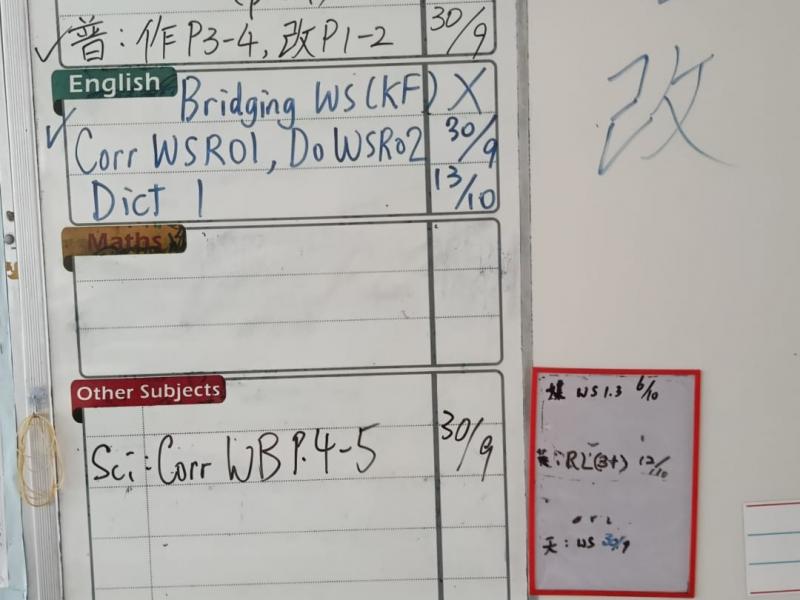 普：作P3-4, 改P1-2 30/9
English
Bridging WS(KF) X
Corr WSR01, Do WSR02 30/9
Dict 1 13/10
Maths
Other Subjects
Sci: Corr WB P.4-5 30/9
改
WS 1.3 6/10
: RL(3+) 12/10
天: WS 30/9